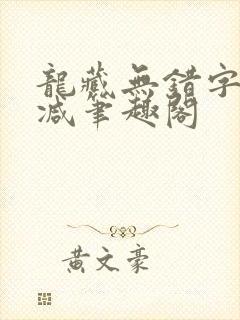 龍藏無錯字
減筆趣閣
黃文豪